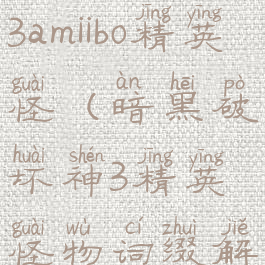 jīng yīng
3amiibo精英
guài àn hēi pò
怪（暗黑破
huài shén jīng yīng
坏神3精英
guài wù cí zhuì jiě
怪物词缀解